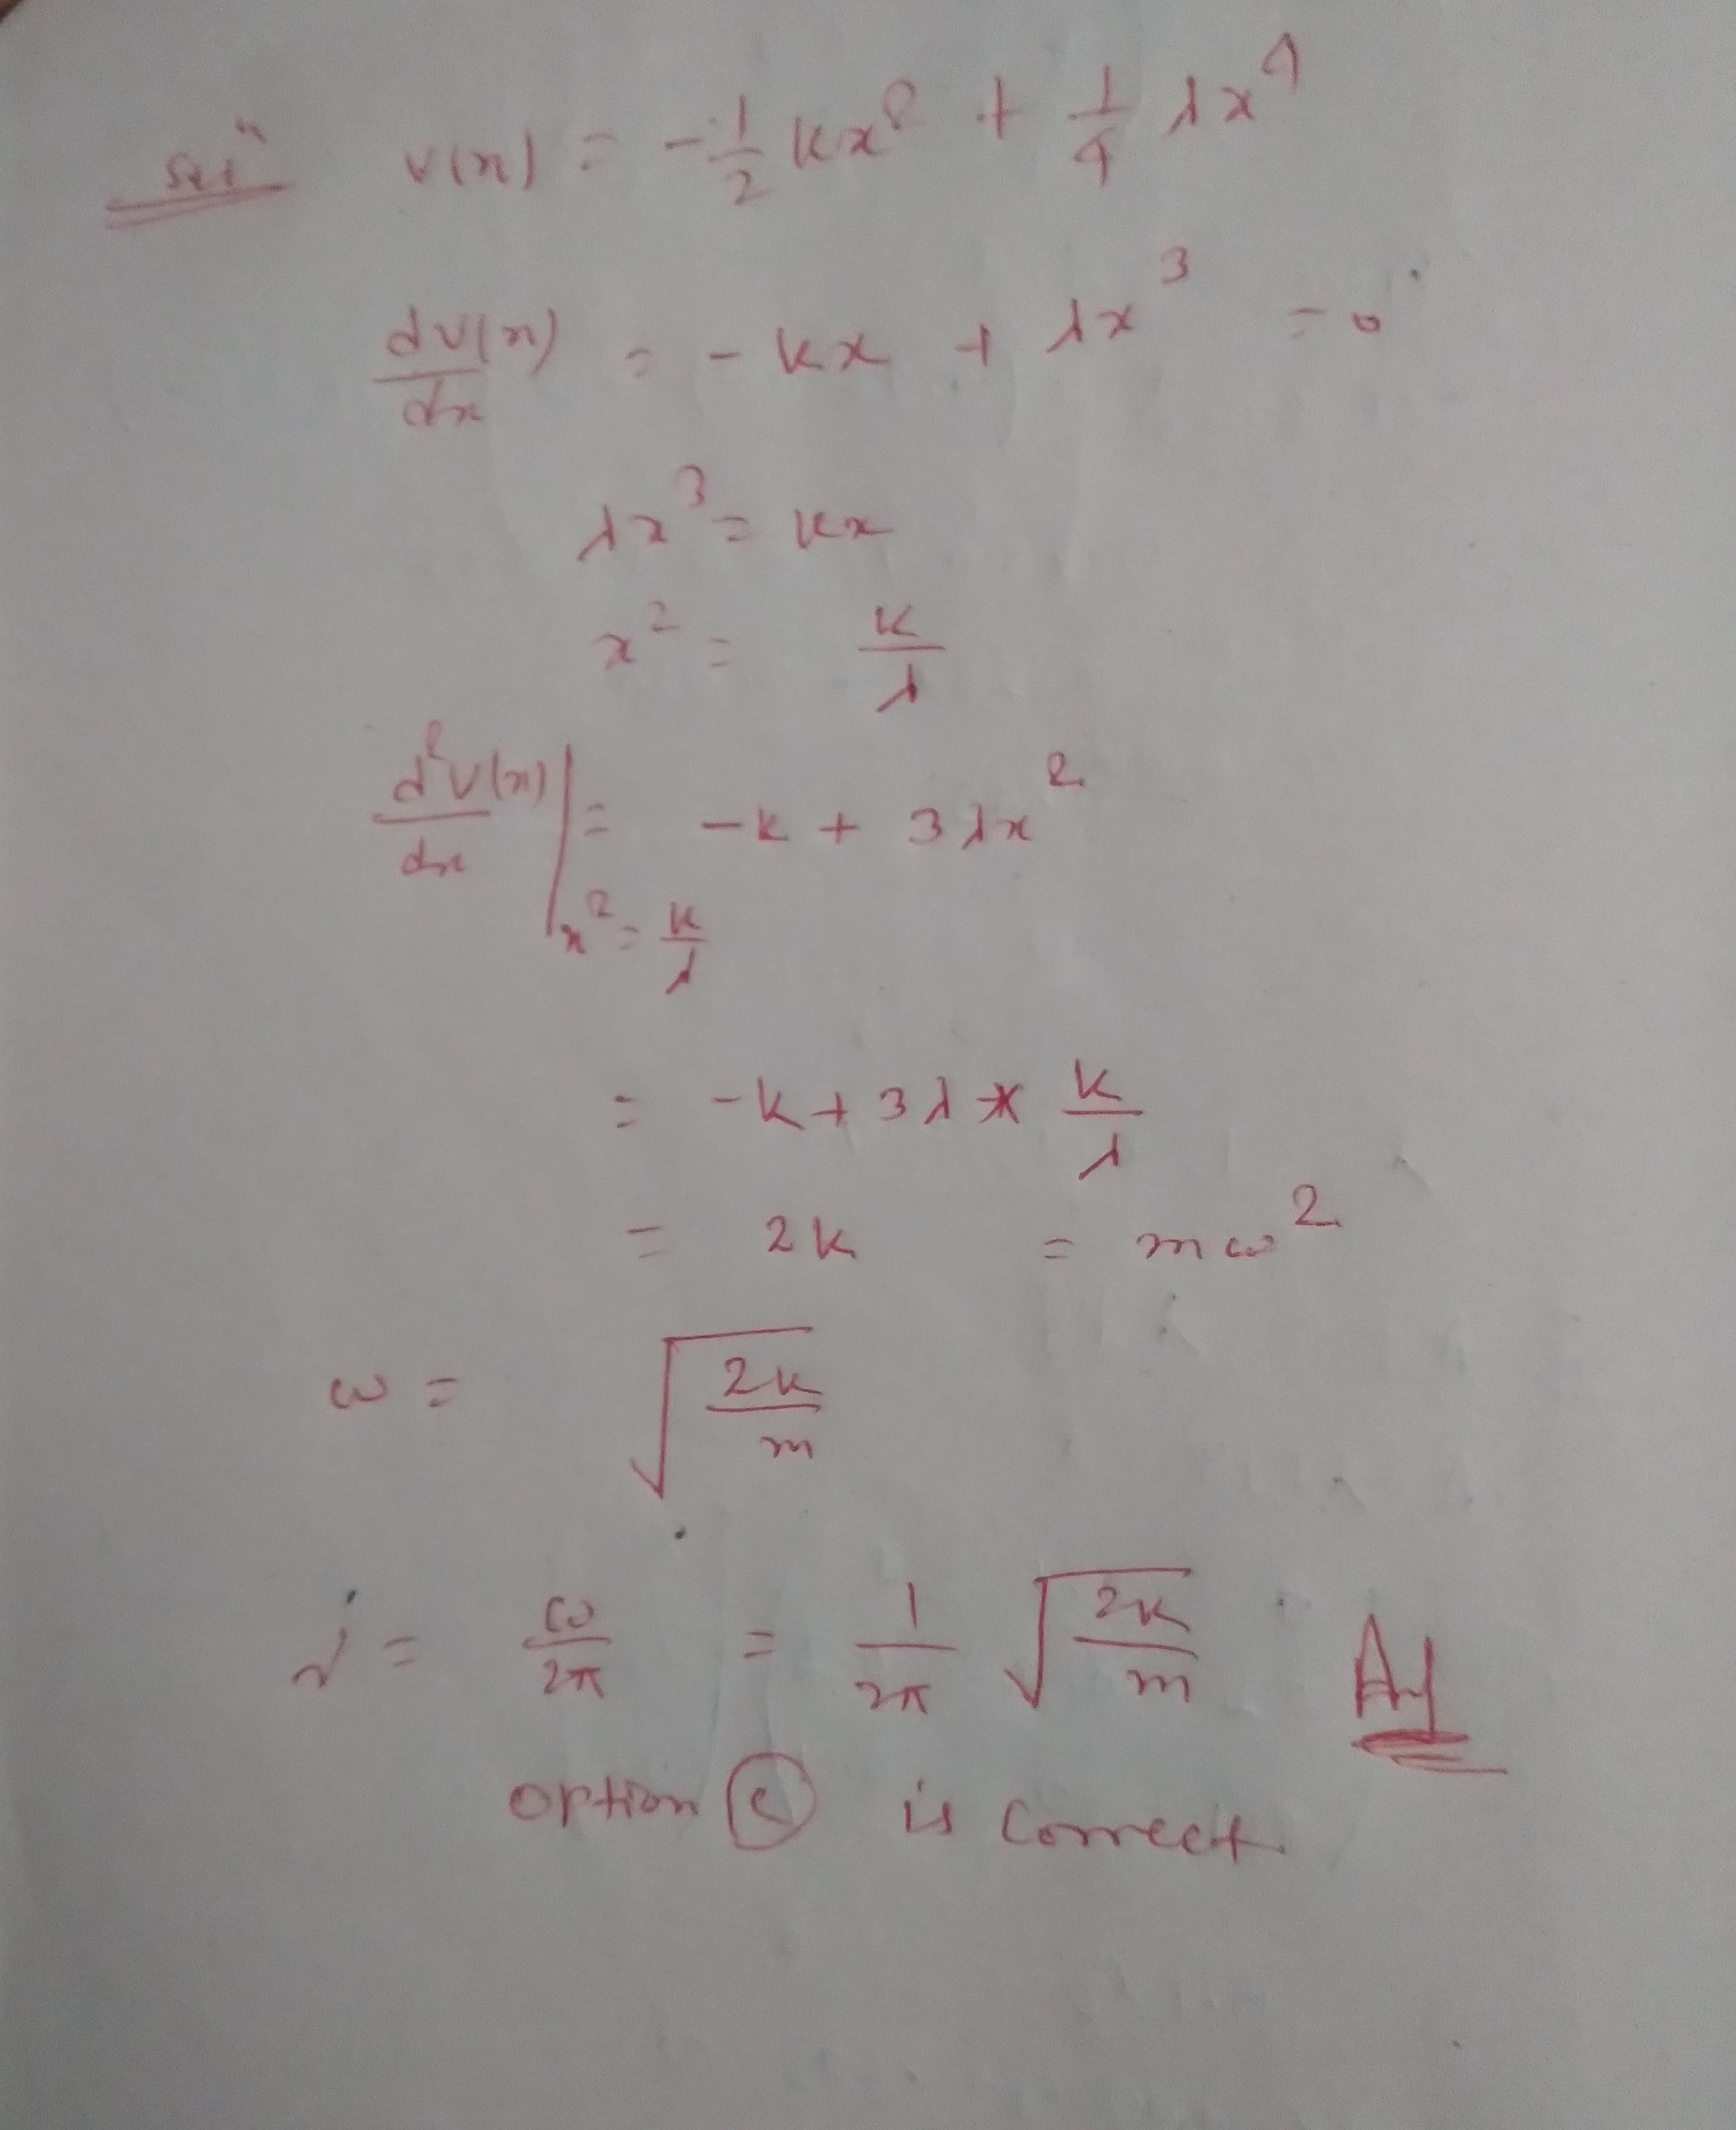 Solⁿ V(x) = -1/2 kx² + 1/4 λx⁴
dV(x)/dx = - kx + λx³ = 0
λx³ = kx
x² = k/λ
d²V(x)/dx |x² = k/λ = -k + 3λx²
= -k + 3λ * k/λ
= 2k = mω²
ω = √(2k/m)
ν = ω/2π = 1/2π √(2k/m) Ay
option (c) is correct.